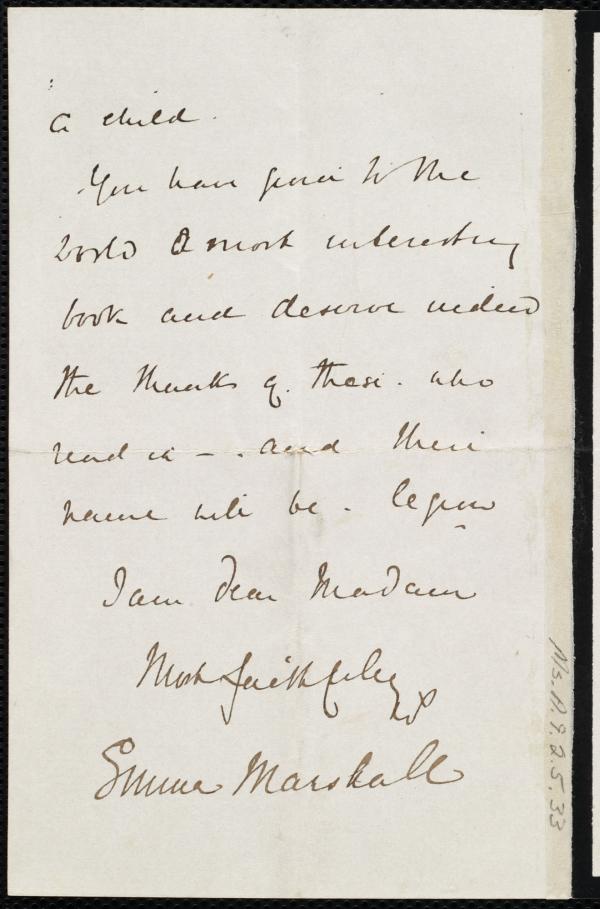 a child.
You have given to the
world a most interesting
book and deserve indeed
the thanks of those who
read it - and their
name will be - legion
I am dear Madam
Most faithfully
Emma Marshall
Ms.A.9.2.5.33